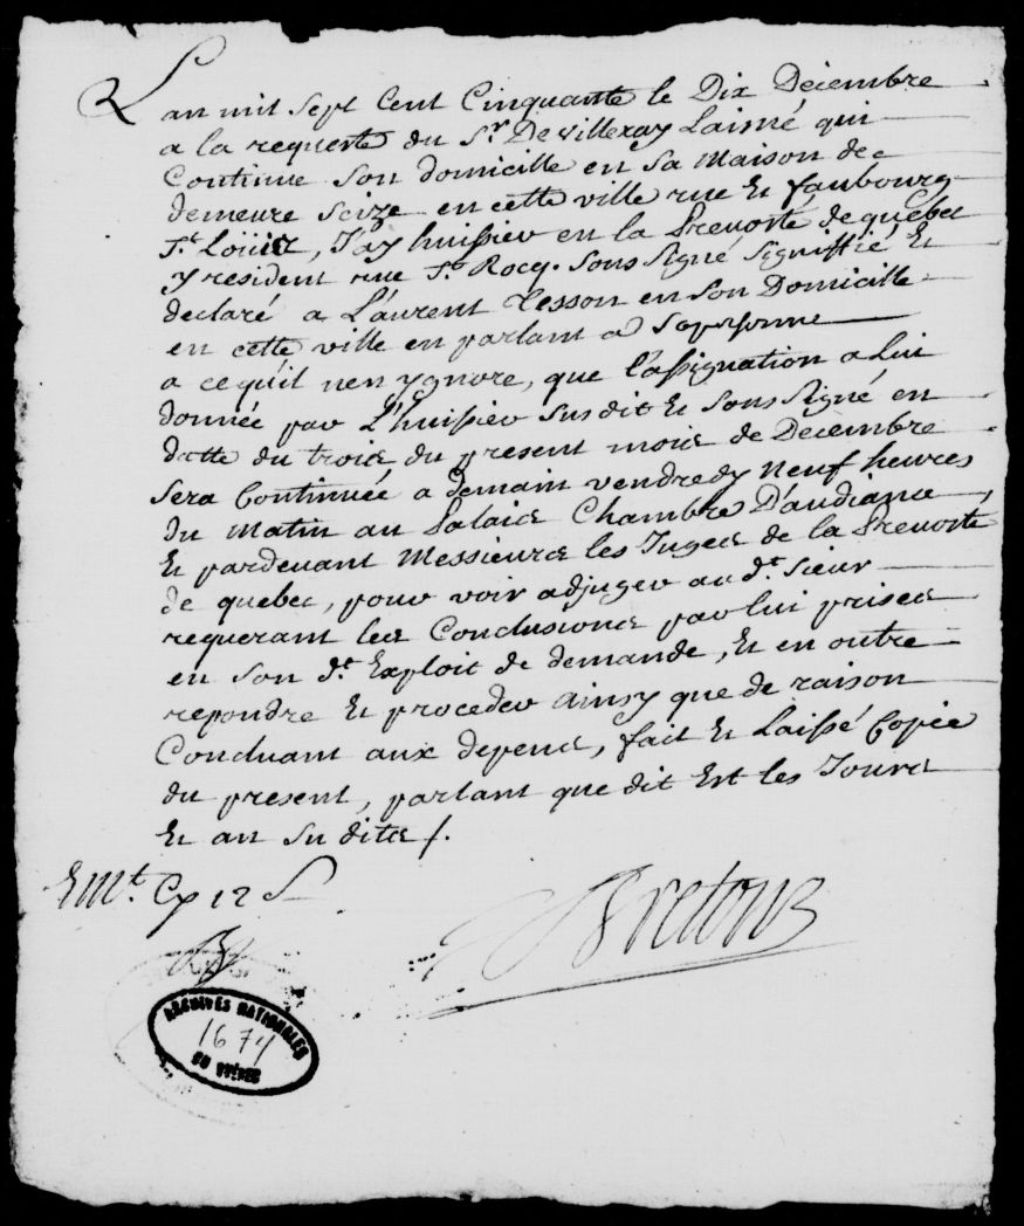 L'an mil Sept Cent Cinquante le Dix Decembre
a la requeste du Sr. De villeray Laisné qui
Continue Son domicille en Sa Maison de
demeure Scize en cette ville rue Et faubourg
St. Loüis, J'ay huissier en la Prevosté de quebec
y resident rue St. Rocq. Sous Signé Signiffié Et
declaré a Laurent Tesson en Son Domicille
en cette ville en parlant a Sa personne
a ce qu'il n'en ygnore, que l'assignation a Lui
donnée par L'huissier Susdit Et Sous Signé en
datte du trois du present mois de Decembre
Sera Continuée a demain vendredy Neuf heures
du Matin au Palais Chambre D'audiance,
Et pardevant Messieurs les Juges de la Prevosté
de quebec, pour voir adjuger au dt. Sieur
requerant les Conclusions par lui prises
en Son dt. Exploit de demande, Et en outre
repondre Et proceder Ainsy que de raison
Concluant aux depens, fait Et Laissé Copie
du present, parlant que dit Est les Jours
Et an Sudits /.
Emt. Cy 12 S
Bretour
ARCHIVES NATIONALES
1674
DU QUÉBEC